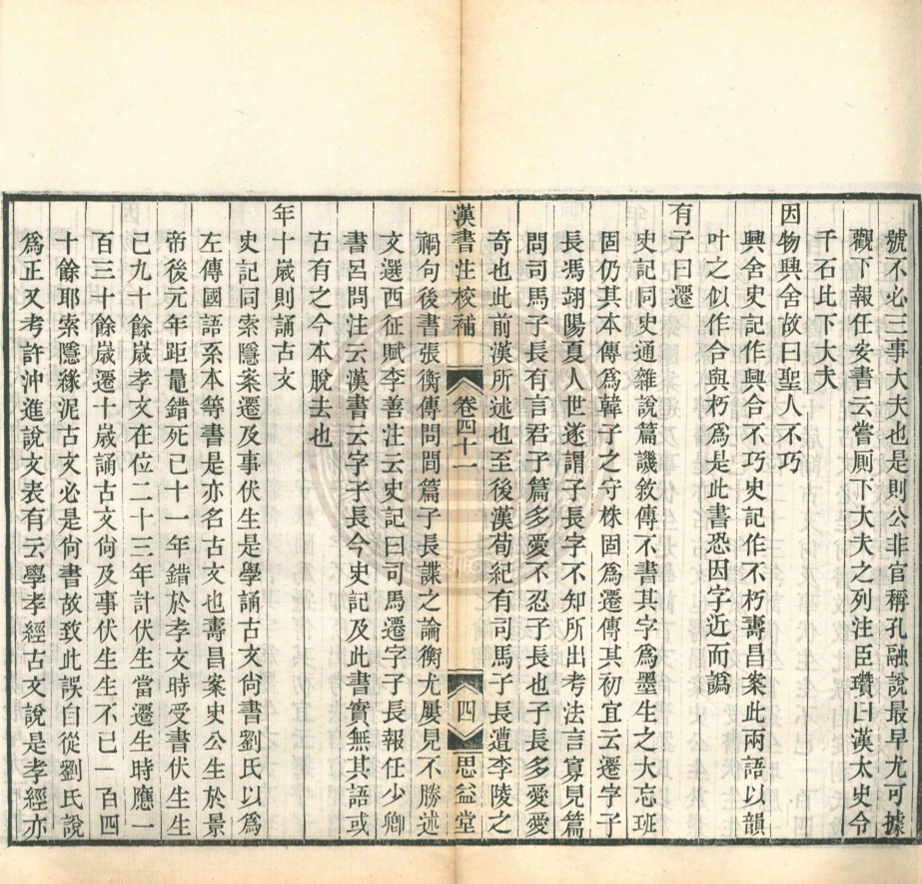 號不必三事大夫也是則公非官稱孔融說最早尤可據
觀下報任安書云嘗厠下大夫之列注臣瓚曰漢太史令
千石比下大夫
因物興舍故曰聖人不巧
興舍史記作興合不巧史記作不朽壽昌案此兩語以韻
叶之似作合與朽爲是此書恐因字近而譌
有子曰遷
史記同史通雜說篇譏敘傳不書其字爲墨生之大忘班
固仍其本傳爲韓子之守株固爲遷傳其初宜云遷字子
長馮翊陽夏人世遂謂子長字不知所出考法言寡見篇
問司馬子長有言君子篇多愛不忍子長也子長多愛愛
奇也此前漢所述也至後漢荀紀有司馬子長遭李陵之
漢書注校補 卷四十一 四 思益堂
禍句後書張衡傳問問篇子長諜之論衡尤屢見不勝述
文選西征賦李善注云史記曰司馬遷字子長報任少卿
書呂問注云漢書云字子長今史記及此書實無其語或
古有之今本脫去也
年十歲則誦古文
史記同索隱案遷及事伏生是學誦古文尙書劉氏以爲
左傳國語系本等書是亦名古文也壽昌案史公生於景
帝後元年距鼂錯死已十一年錯於孝文時受書伏生生
已九十餘歲孝文在位二十三年計伏生當遷生時應一
百三十餘歲遷十歲誦古文尙及事伏生生不已一百四
十餘耶索隱緣泥古文必是尙書故致此誤自從劉氏說
爲正又考許沖進說文表有云學孝經古文說是孝經亦